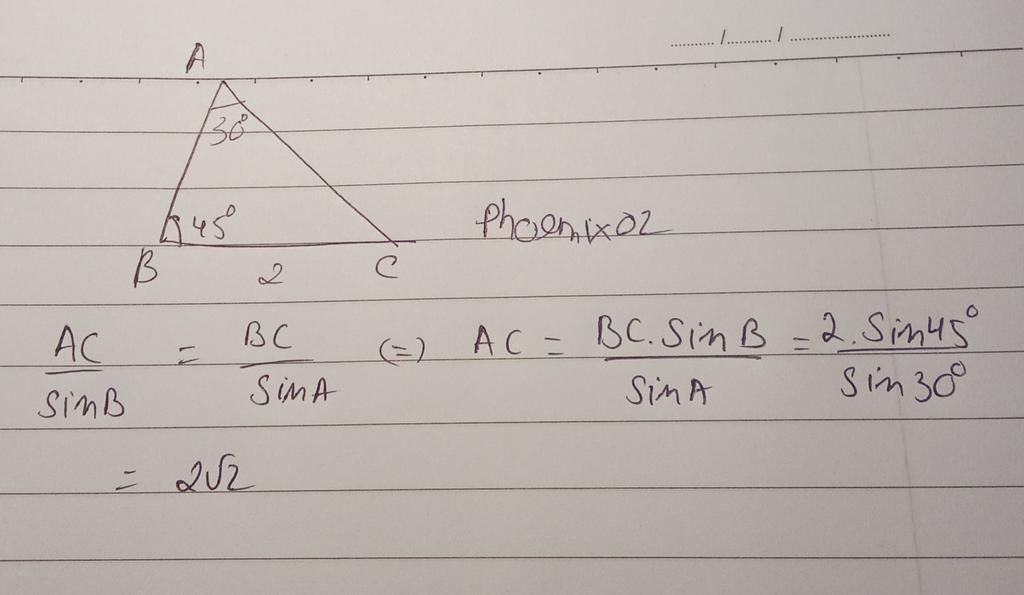 ........../........../......................
A
30°
45°
Phoenix02
B 2 C
AC/SinB = BC/SinA (=) AC = BC.SinB/SinA = 2.Sin45°/Sin30°
= 2√2